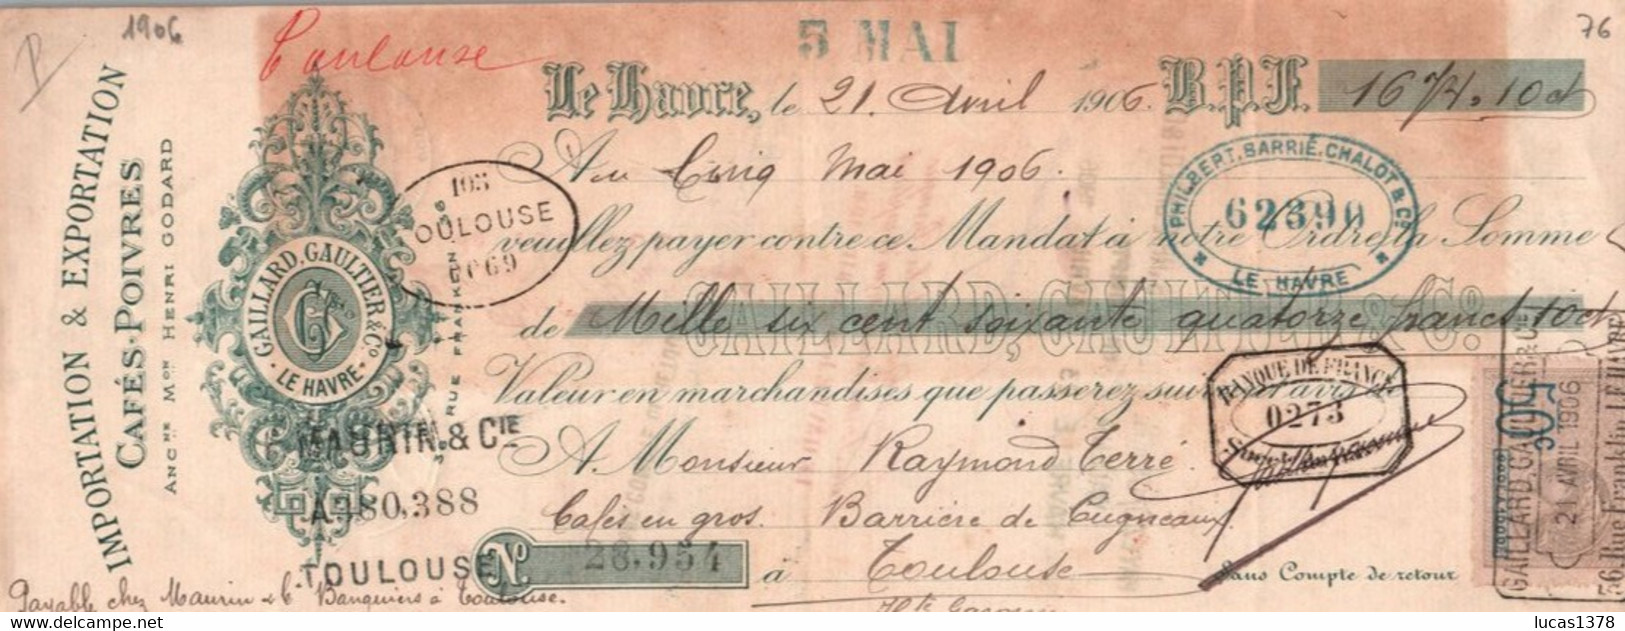 1906
Toulouse
5 MAI
76
Le Havre, le 21 Avril 1906. B.P.F. 1674,10 ct
Au Cinq Mai 1906.
veuillez payer contre ce Mandat à notre Ordre la Somme
de Mille six cent soixante quatorze francs 10 cts
GAILLARD, GAULTIER & Co.
Valeur en marchandises que passerez suivant avis
A Monsieur Raymond Terré
Cafés en gros. Barrière de Cugneaux
No. 28.954 à Toulouse
Hte Garonne
Sans Compte de retour
Payable chez Maurin & Cie Banquiers à Toulouse.
IMPORTATION & EXPORTATION
CAFÉS-POIVRES
ANCNE MON HENRI GODARD
GAILLARD, GAULTIER & Co
LE HAVRE
RUE FRANKLIN
103
TOULOUSE
PHILBERT, BARRIÉ, CHALOT & Cie
62390
LE HAVRE
BANQUE DE FRANCE
0273
MAURIN & CIE
A 480,388
TOULOUSE
21 AVRIL 1906
GAILLARD, GAULTIER & Cie
56 Rue Franklin, LE HAVRE
lucas1378